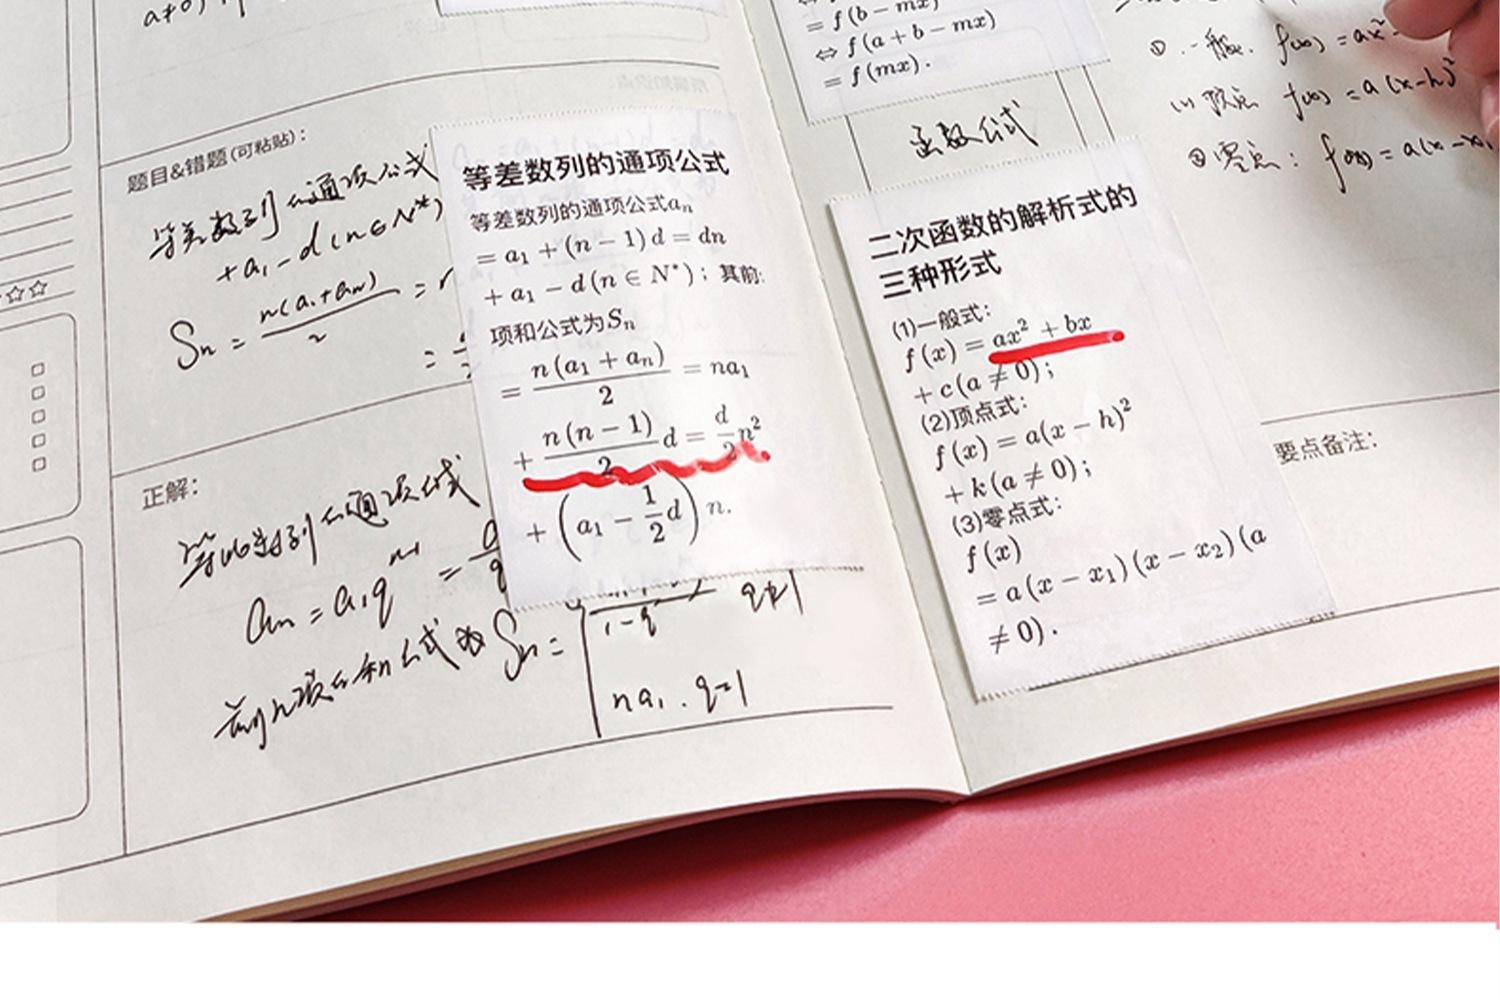 题目&错题(可粘贴):
等差数列的通项公式
+a₁-d(n∈N*)
Sₙ = n(a₁+aₙ)/2 =
正解:
等比数列的通项公式
aₙ=a₁qⁿ⁻¹ =
前n项的和公式为Sₙ=
1-q
q≠1
na₁. q=1
等差数列的通项公式
等差数列的通项公式aₙ
= a₁ + (n − 1) d = dn
+ a₁ − d (n ∈ N*) ; 其前
项和公式为Sₙ
= n(a₁ + aₙ)/2 = na₁
+ n(n − 1)/2 d = d/2 n²
+ (a₁ − 1/2 d) n.
= f(b − mx)
⇔ f(a + b − mx)
= f(mx).
函数公式
二次函数的解析式的
三种形式
(1)一般式:
f(x) = ax² + bx
+ c(a ≠ 0);
(2)顶点式:
f(x) = a(x − h)²
+ k(a ≠ 0);
(3)零点式:
f(x)
= a(x − x₁)(x − x₂)(a
≠ 0).
f(x)=ax²
f(x)=a(x-h)²
零点: f(x)=a(x-x₁
要点备注: